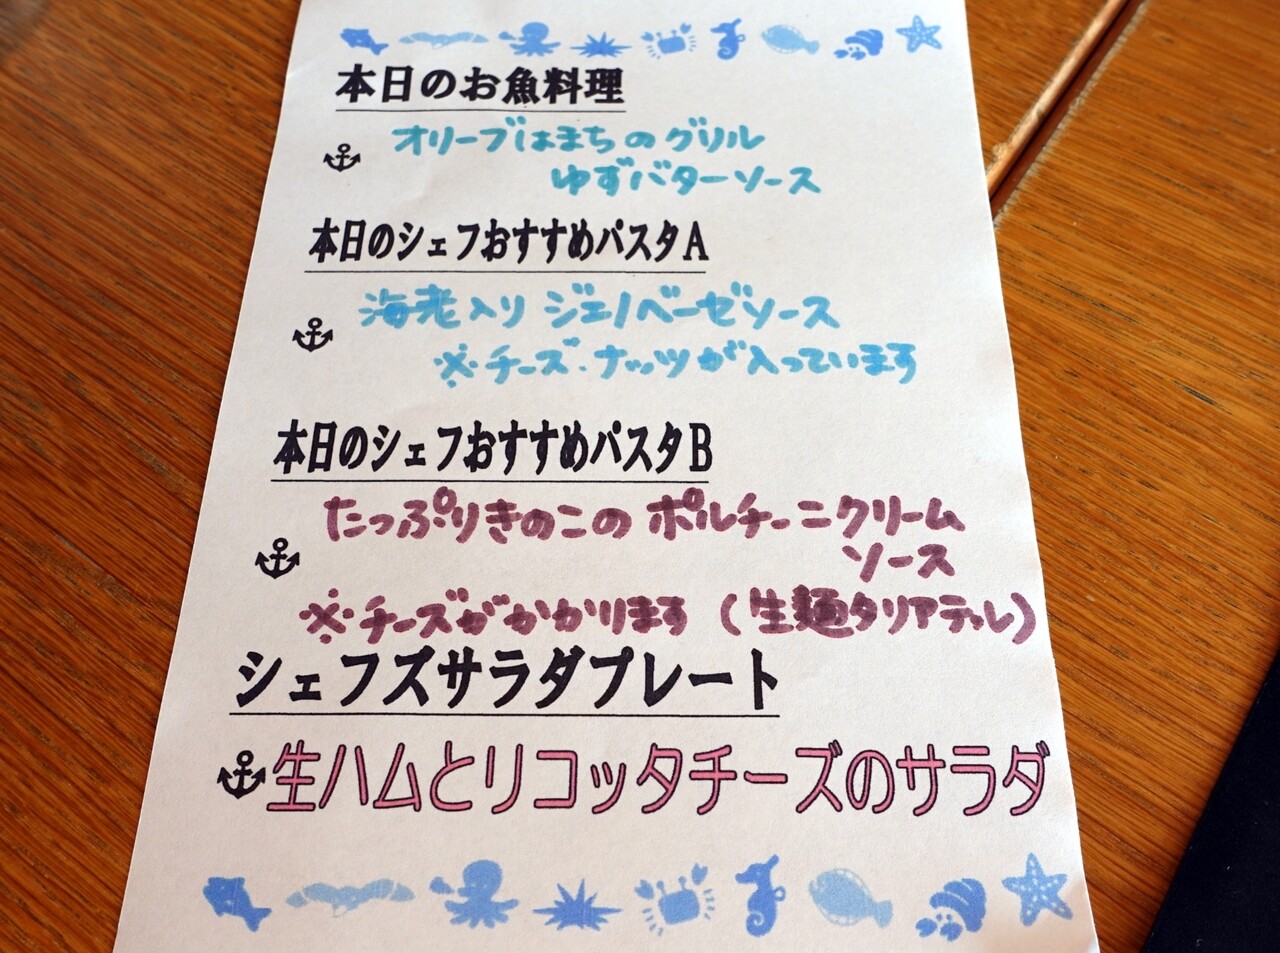 本日のお魚料理
オリーブはまちのグリル
ゆずバターソース
本日のシェフおすすめパスタA
海老入り ジェノベーゼソース
※チーズ・ナッツが入っています
本日のシェフおすすめパスタB
たっぷりきのこの ポルチーニクリーム
ソース
※チーズがかかります (生麺タリアテッレ)
シェフズサラダプレート
生ハムとリコッタチーズのサラダ